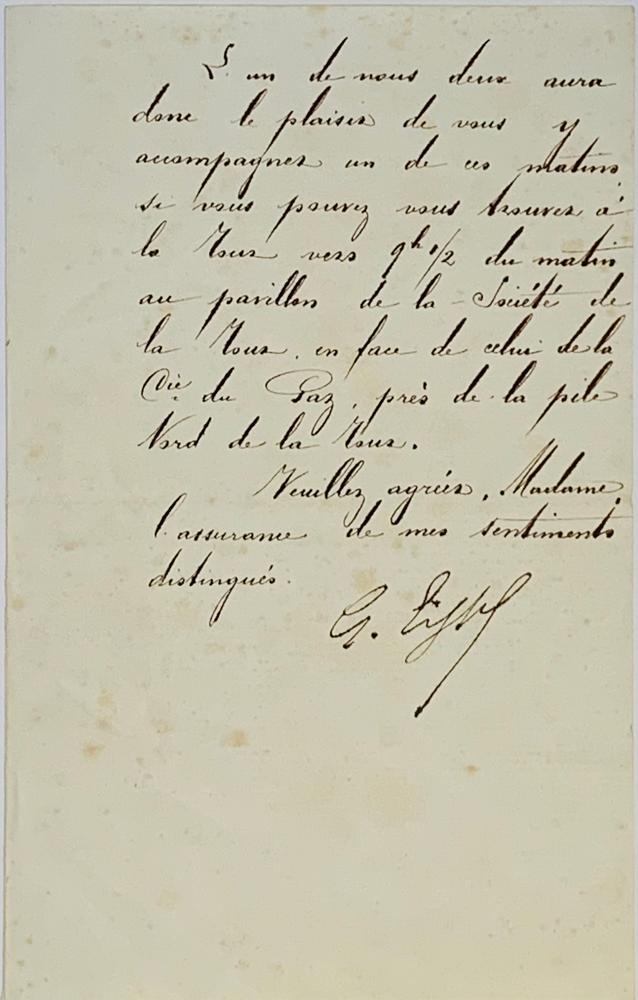 L'un de nous deux aura
donc le plaisir de vous y
accompagner un de ces matins,
si vous pouvez vous trouver à
la Tour vers 9h 1/2 du matin
au pavillon de la Société de
la Tour, en face de celui de la
Cie du Gaz, près de la pile
Nord de la Tour.
Veuillez agréer, Madame,
l'assurance de mes sentiments
distingués.
G. Eiffel